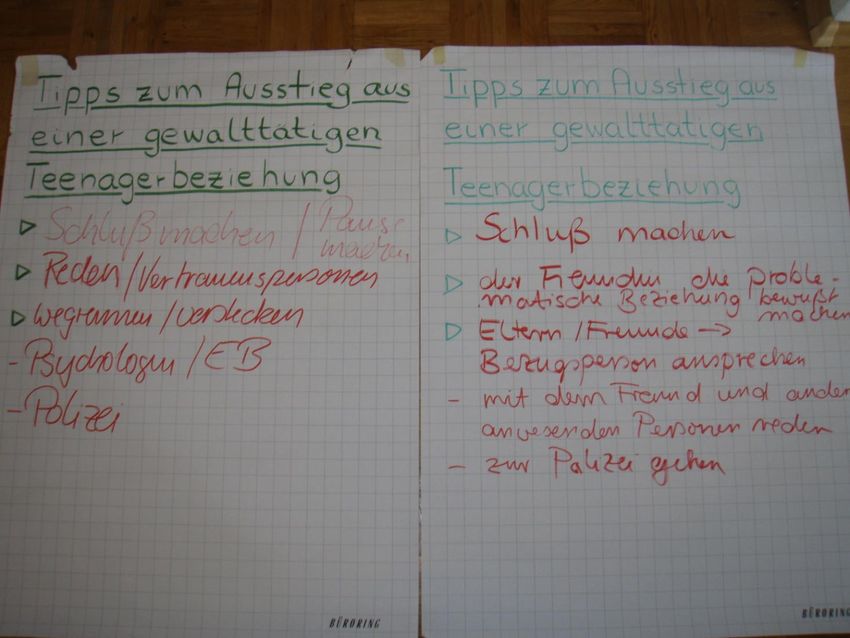 Tipps zum Ausstieg aus
einer gewalttätigen
Teenagerbeziehung
▷ Schluß machen / Pause
machen
▷ Reden / Vertrauenspersonen
▷ wegrennen / verstecken
- Psychologin / EB
- Polizei
BÜRORING
Tipps zum Ausstieg aus
einer gewalttätigen
Teenagerbeziehung
▷ Schluß machen
▷ der Freundin die proble-
matische Beziehung bewußt
machen
▷ Eltern / Freunde →
Bezugsperson ansprechen
- mit dem Freund und ander
anwesenden Personen reden
- zur Polizei gehen
BÜRORING